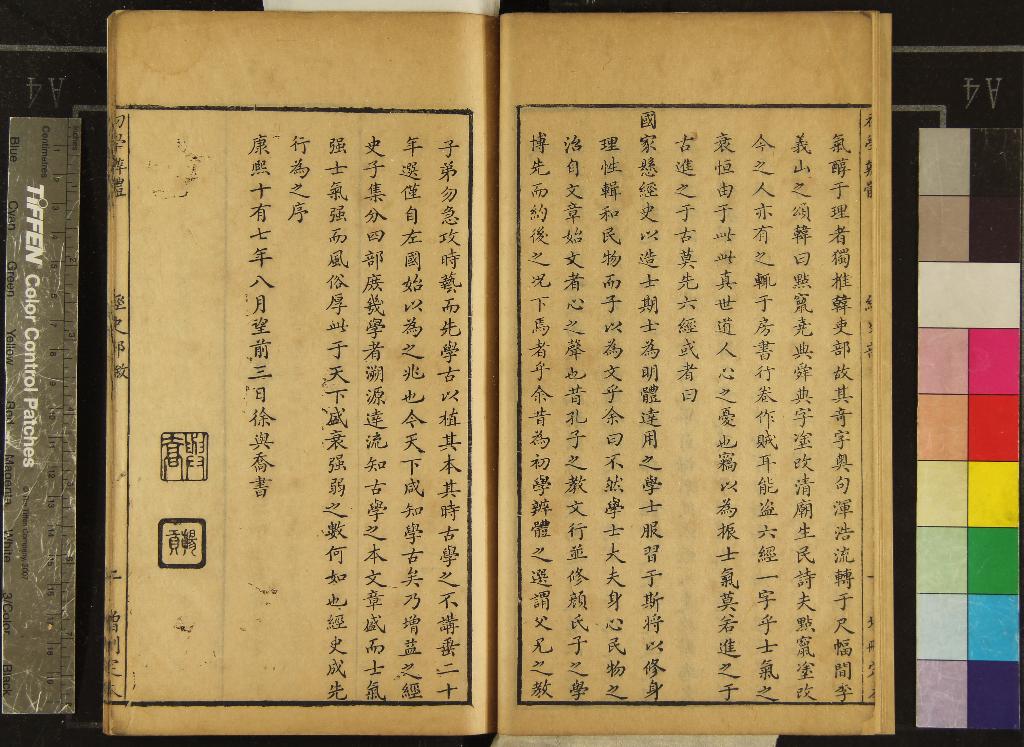 氣醇于理者獨推韓吏部故其奇字奧句渾浩流轉于尺幅間李
義山之頌韓曰點竄堯典舜典字塗改清廟生民詩夫點竄塗改
今之人亦有之輒于房書行卷作賊耳能盜六經一字乎士氣之
衰恒由于此此真世道人心之憂也竊以為振士氣莫若進之于
古進之于古莫先六經或者曰
國家懸經史以造士期士為明體達用之學士服習于斯將以修身
理性輯和民物而子以為文乎余曰不然學士大夫身心民物之
治自文章始文者心之聲也昔孔子之教文行並修顏氏子之學
博先而約後之况下焉者乎余昔為初學辨體之選謂父兄之教
子弟勿急攻時藝而先學古以植其本其時古學之不講垂二十
年選僅自左國始以為之兆也今天下咸知學古矣乃增益之經
史子集分四部庶幾學者溯源達流知古學之本文章盛而士氣
强士氣强而風俗厚此于天下盛衰强弱之數何如也經史成先
行為之序
康熙十有七年八月望前三日徐與喬書
與喬
初學辨體
A4
A4
TIFFEN Color Control Patches
Centimetres
Inches
Blue
Cyan
Green
Yellow
Red
Magenta
White
3/Color
Black